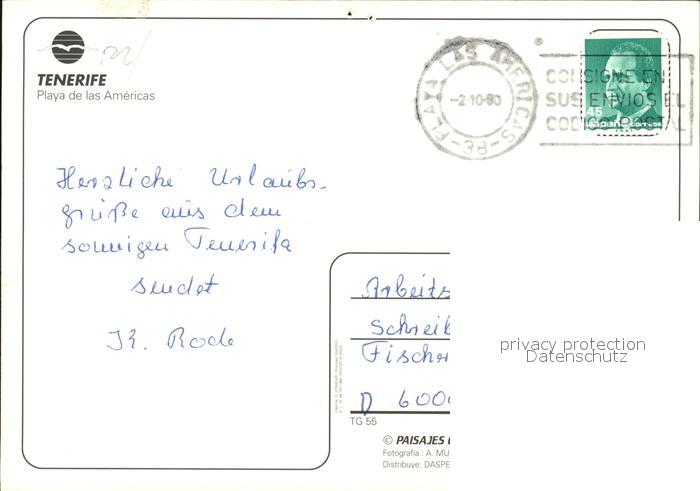 TENERIFE
Playa de las Américas
PLAYA LAS AMERICAS
-2-10-90
-38-
CONSIGNE EN
SUS ENVIOS EL
CODIGO POSTAL
45
Herzliche Urlaubs-
grüße aus dem
sonnigen Teneriffa
sendet
K. Rode
Arbeits
Schreib
Fischer
D 6000
privacy protection
Datenschutz
TG 55
© PAISAJES
Fotografía: A. MU
Distribuye: DASPE